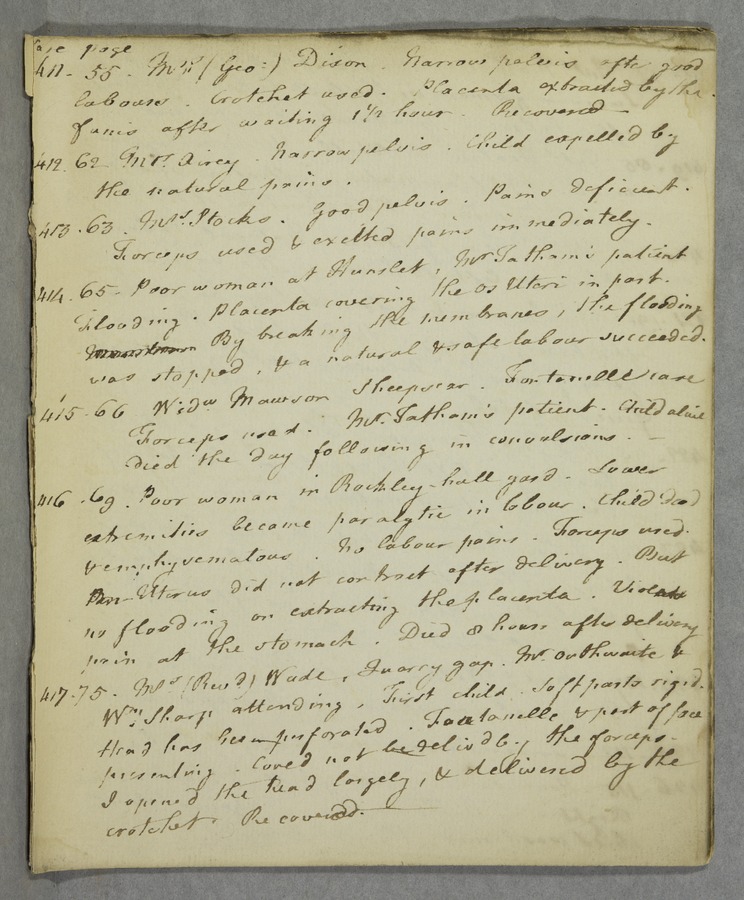 Case page
411. 55. Mrs. (Geo:) Dixon. Narrow pelvis after good
labours. Crotchet used. Placenta extracted by the
funis after waiting 1 1/2 hour. Recovered —
412. 62 Mrs. Airey. Narrow pelvis. Child expelled by
the natural pains.
413. 63. Mrs. Stocks. Good pelvis. Pains deficient.
Forceps used & excited pains immediately.
414. 65. Poor woman at Hunslet, Mr Tatham's patient
Flooding. Placenta covering the os Uteri in part.
By breaking the membranes, the flooding
was stopped, & a natural & safe labour succeeded.
415. 66 Widw Mawson Sheepscar. Fontanelle case
Forceps used. Mr. Tatham's patient. Child alive
died the day following in convulsions. —
416. 69. Poor woman in Rockley-hall yard. Lower
extremities became paralytic in labour. Child dead
& emphysematous. No labour pains. Forceps used.
Uterus did not contract after delivery. But
no flooding on extracting the placenta. Violent
pain at the stomach. Died 8 hours after delivery
417. 75. Mrs (Revd) Wade, Quarry gap. Mr. Outhwaite &
Wm. Sharp attending. First child. Soft parts rigid.
Head has been perforated. Fontanelle & part of face
presenting. Could not be delivd by the forceps.
I opened the head largely, & delivered by the
crotchet. Recovered.